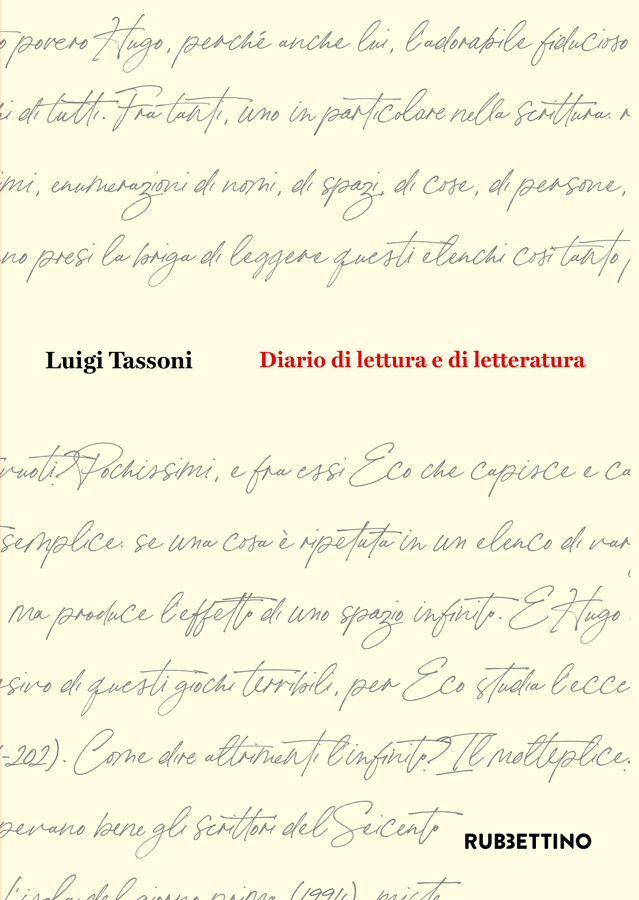 povero Hugo, perché anche lui, l'adorabile fiducioso
di tutti. Fra tanti, uno in particolare nella scrittura: r
imi, enumerazioni di nomi, di spazi, di cose, di persone,
no presi la briga di leggere questi elenchi così tanto
Luigi Tassoni
Diario di lettura e di letteratura
vuoti? Pochissimi, e fra essi Eco che capisce e ca
semplice: se una cosa è ripetuta in un elenco di var
ma produce l'effetto di uno spazio infinito. E Hugo
sivo di questi giochi terribili, per Eco studia l'ecce
-202). Come dire altrimenti l'infinito? Il molteplice.
pevano bene gli scrittori del Seicento
RUBBETTINO
L'isola del giorno prima (1994),